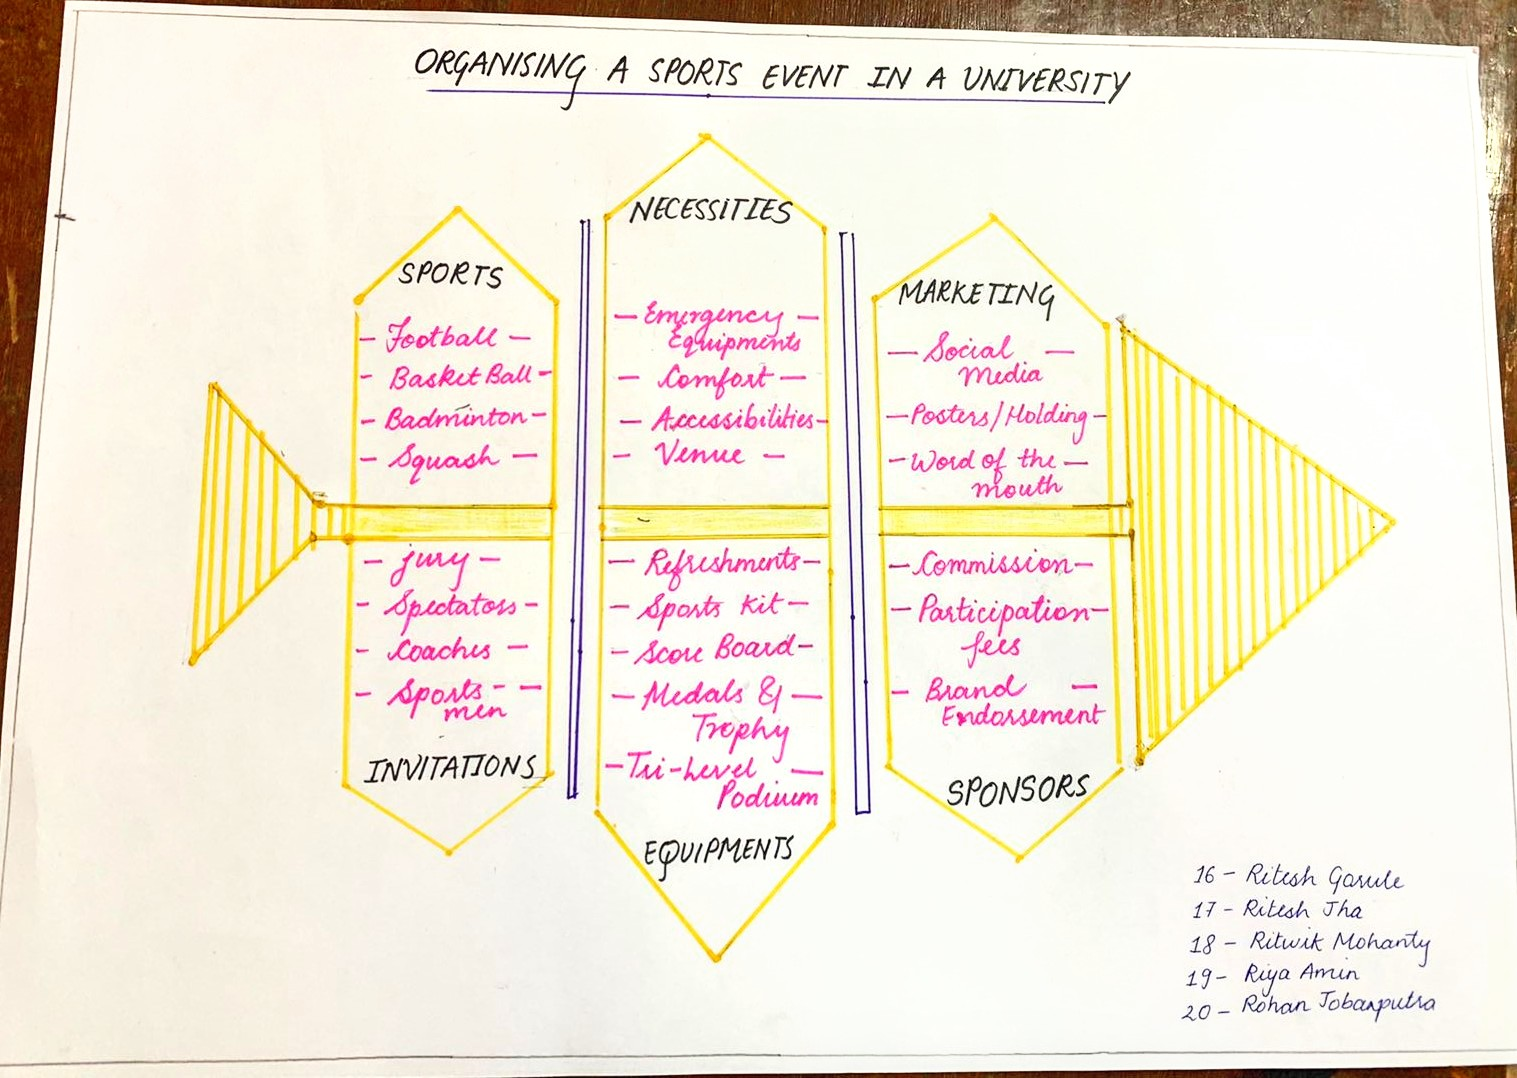 ORGANISING A SPORTS EVENT IN A UNIVERSITY
SPORTS
- Football -
- Basket Ball -
- Badminton -
- Squash -
- jury -
- Spectators -
- Coaches -
- Sports - -
men
INVITATIONS
NECESSITIES
- Emergency -
Equipments
- Comfort -
- Accessibilities -
- Venue -
- Refreshments -
- Sports Kit -
- Score Board -
- Medals & -
Trophy
- Tri-Level -
Podium
EQUIPMENTS
MARKETING
- Social -
Media
- Posters/Holding -
- Word of the -
mouth
- Commission -
- Participation -
fees
- Brand -
Endorsement
SPONSORS
16 - Ritesh Garule
17 - Ritesh Jha
18 - Ritwik Mohanty
19 - Riya Amin
20 - Rohan Jobanputra